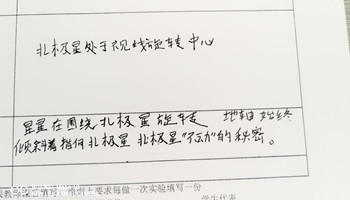 北极星处于视线旋转中心
星星在围绕北极星旋转 地轴始终
倾斜着指向北极星 北极星"不动"的秘密。
要求每做一次实验填写一份
学生代表